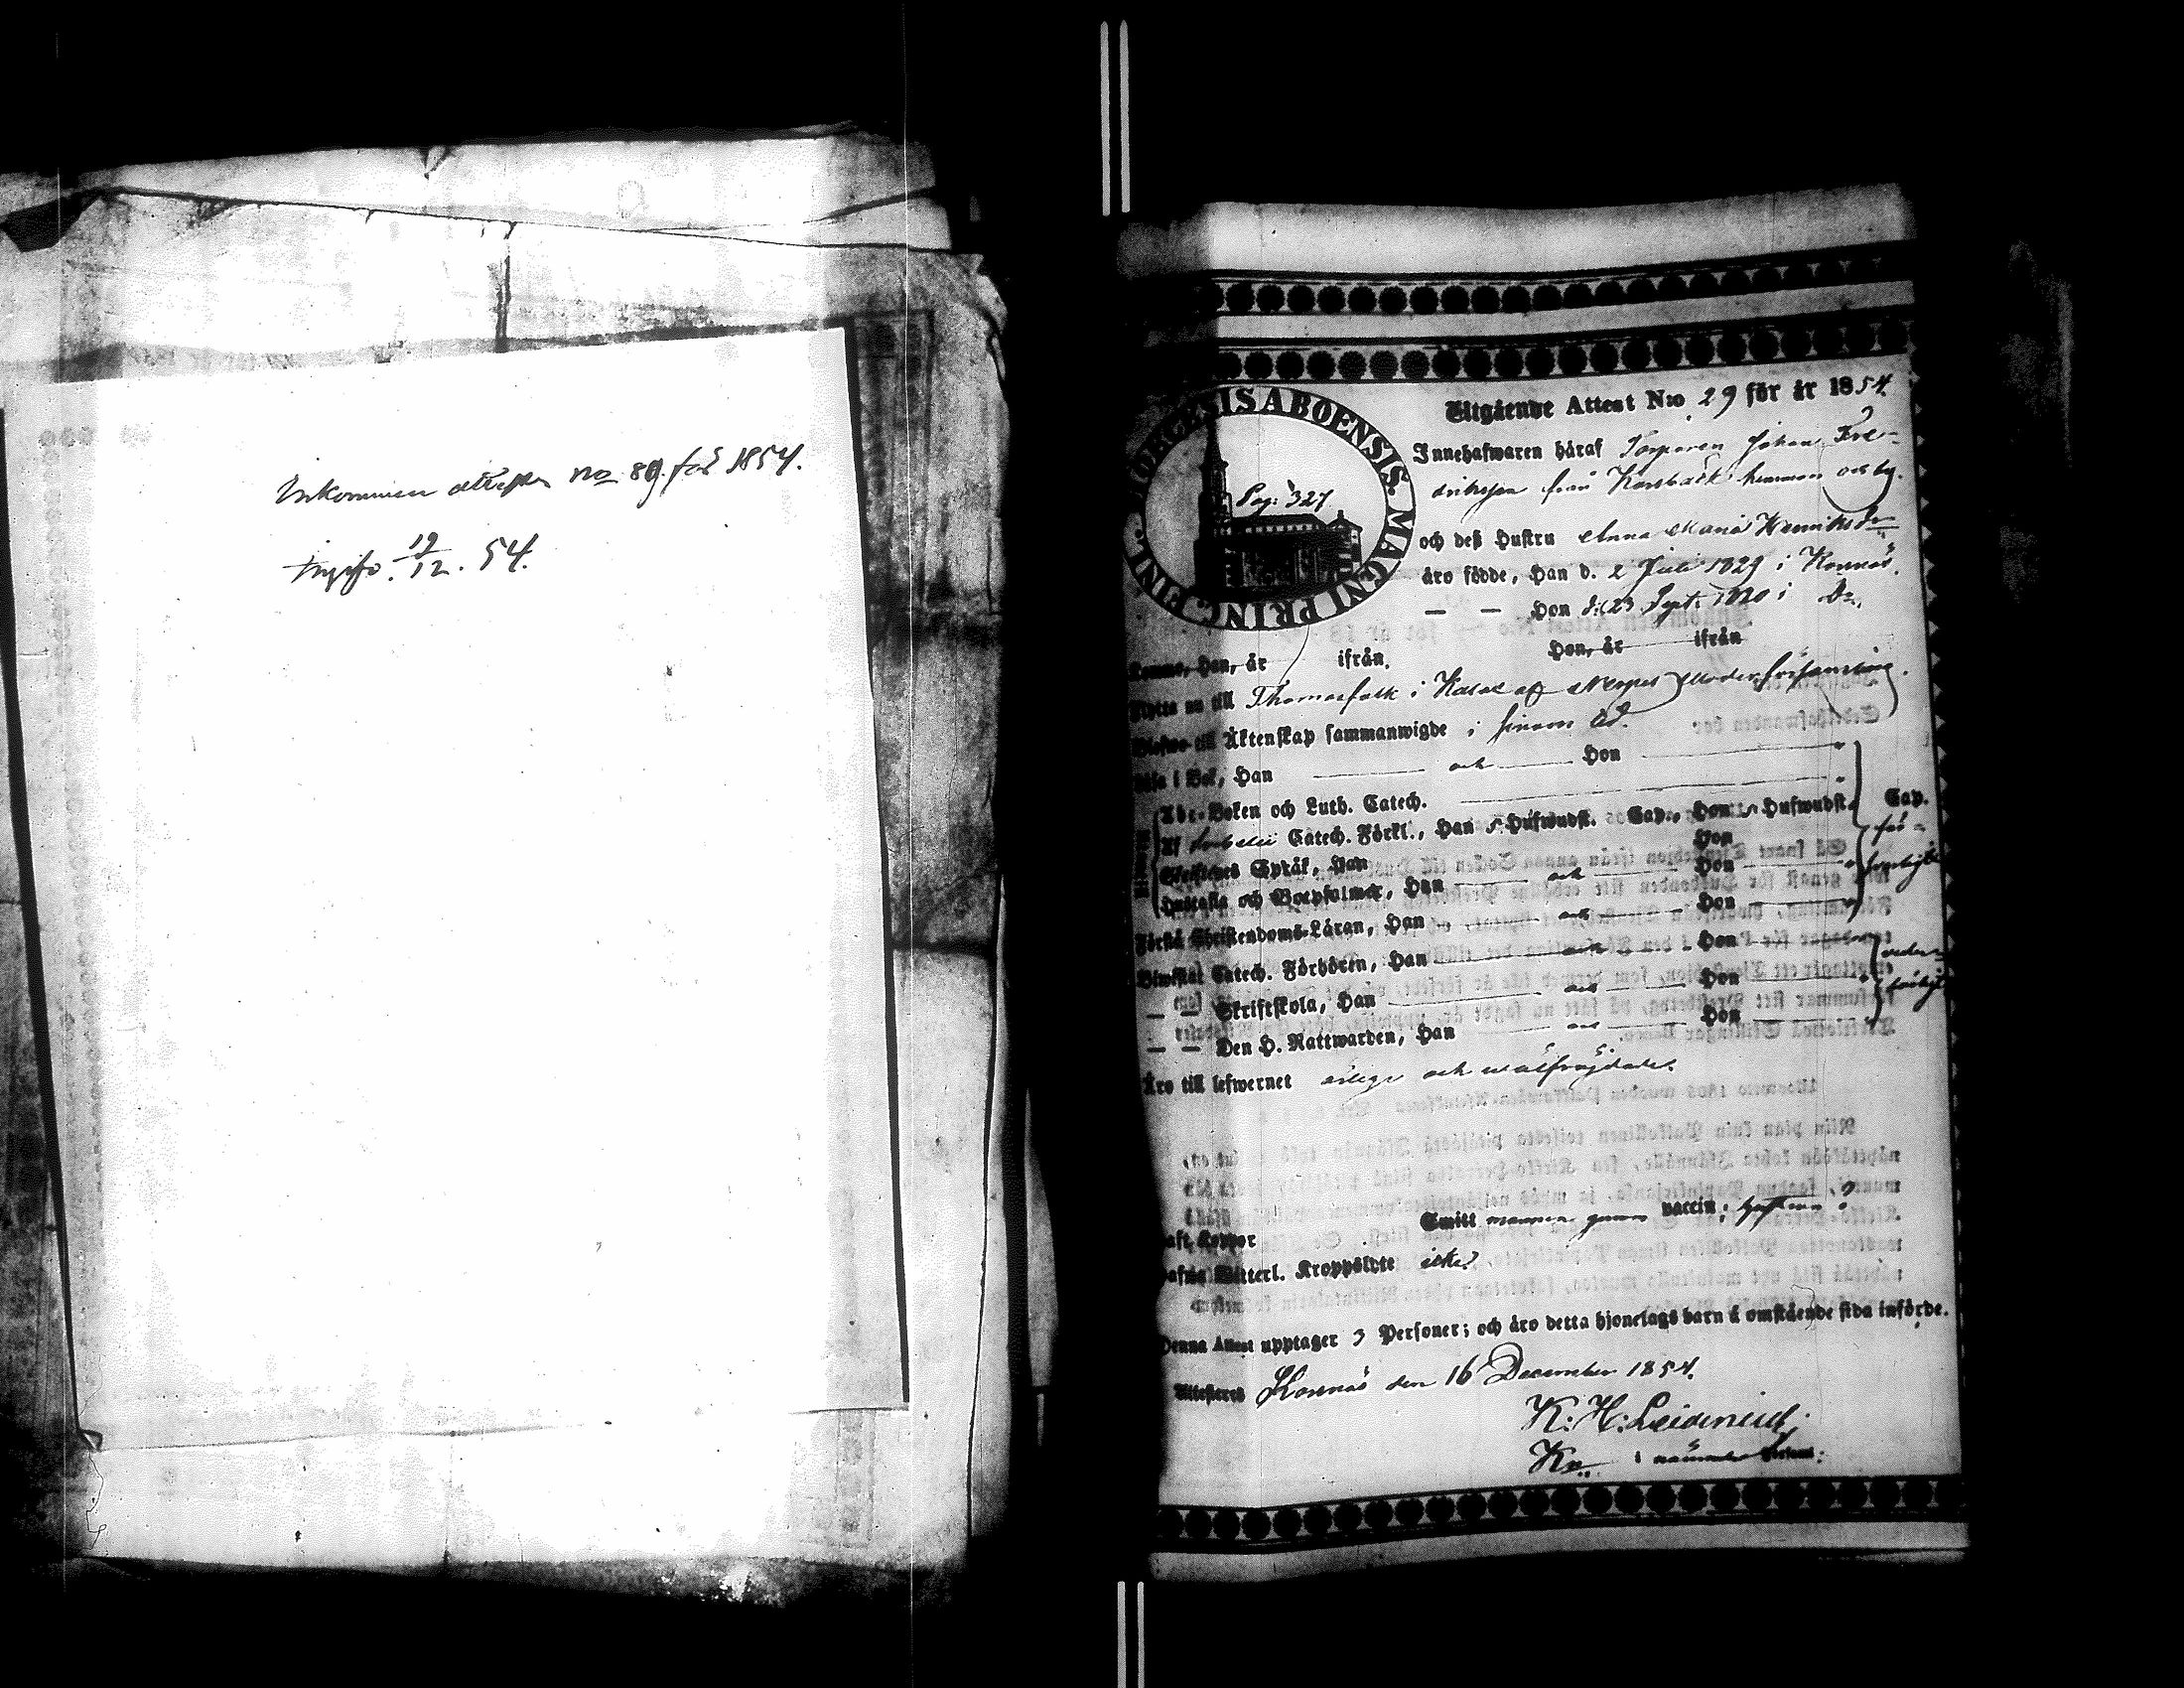 Inkommen attesten No 89. för 1854.
19/12. 54.
DIOECESIS ABOENSIS. MAGNI PRINC. FINL.
Pag: 327.
Utgående Attest N:o 29 för år 1854.
Innehafwaren häraf Torparen Johan Fre-
driksson från Korsbäck hemman och by.
och deß Hustru Anna Maria Henriksdr
äro födde, Han d. 2 Juli 1829 i Korsnäs.
— — Hon d. 23 Sept. 1820 i Do.
Komne, Han, år ifrån Hon, år ifrån
Flytta nu till Thomasfolk i Kalax af Nerpes Moderförsamling.
Blefwo till Äktenskap sammanwigde i sinom tid.
Läsa i Bok, Han och Hon
Abc-Boken och Luth. Catech.
Af Catech. Förkl., Han 5 Hufwudst. Cap., Hon 5 Hufwudst. Cap.
Skriftenes Språk, Han Hon för-
Hustafla och Botpsalmer, Han och Hon swarligt
Förstå Christendoms-Läran, Han och Hon
Biwistat Catech. Förhören, Han och Hon veder-
— — Skriftskola, Han och Hon börligt
— — Den H. Nattwarden, Han och Hon
Äro till lefwernet ärlige och wälfrejdade.
Haft Koppor Smitt mannen genom vaccin; hustrun ?
Hafwa Witterl. Kroppslyte icke.
Denna Attest upptager 3 Personer; och äro detta hjonelags barn å omstående sida införde.
Attesteras Korsnäs den 16 December 1854.
K: H: Leidenius
Kn. i